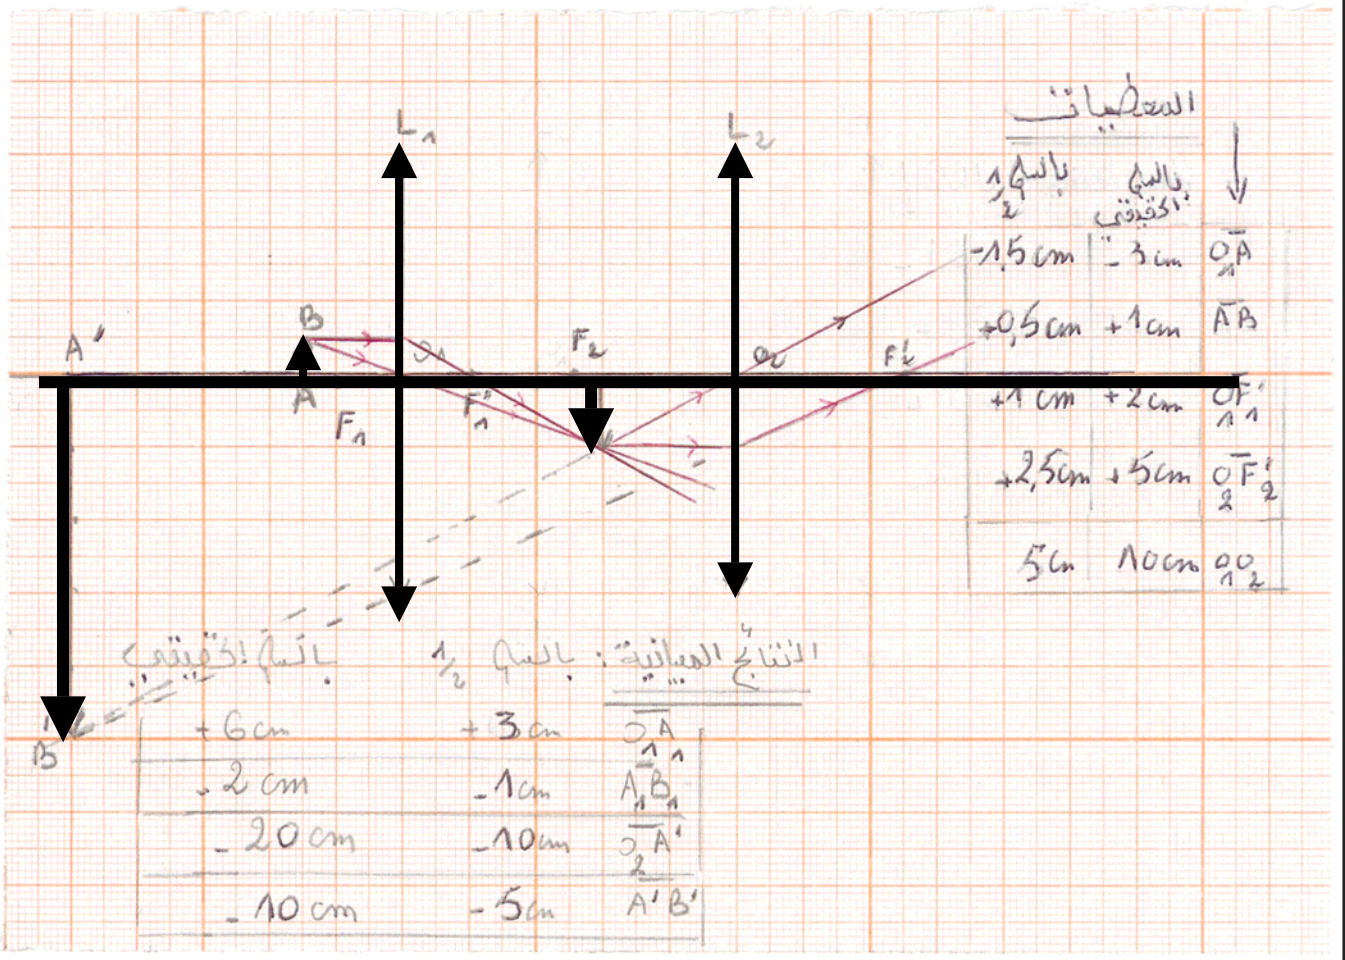 L₁
L₂
المعطيات
بالسلم 1/2
بالسلم الحقيقي
-1,5cm -3cm O₁A
+0,5cm +1cm AB
+1cm +2cm O₁F'₁
+2,5cm +5cm O₂F'₂
5cm 10cm O₁O₂
A'
B
O₁
F₂
O₂
F'₂
A
F₁
F'₁
B'
النتائج المبيانية : بالسلم 1/2 بالسلم الحقيقي
+6cm +3cm O₁A₁
-2cm -1cm A₁B₁
-20cm -10cm O₂A'
-10cm -5cm A'B'